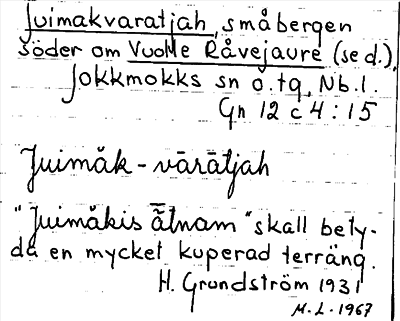 Juimakvaratjah, småbergen
söder om Vuolle Råvejaure (se d.),
Jokkmokks sn o. tg, Nb. l.
Gn 12 c 4 : 15
Juimåk - vārātjah
"Juimåkis ātnam" skall bety-
da en mycket kuperad terräng.
H. Grundström 1931
M. L. 1967